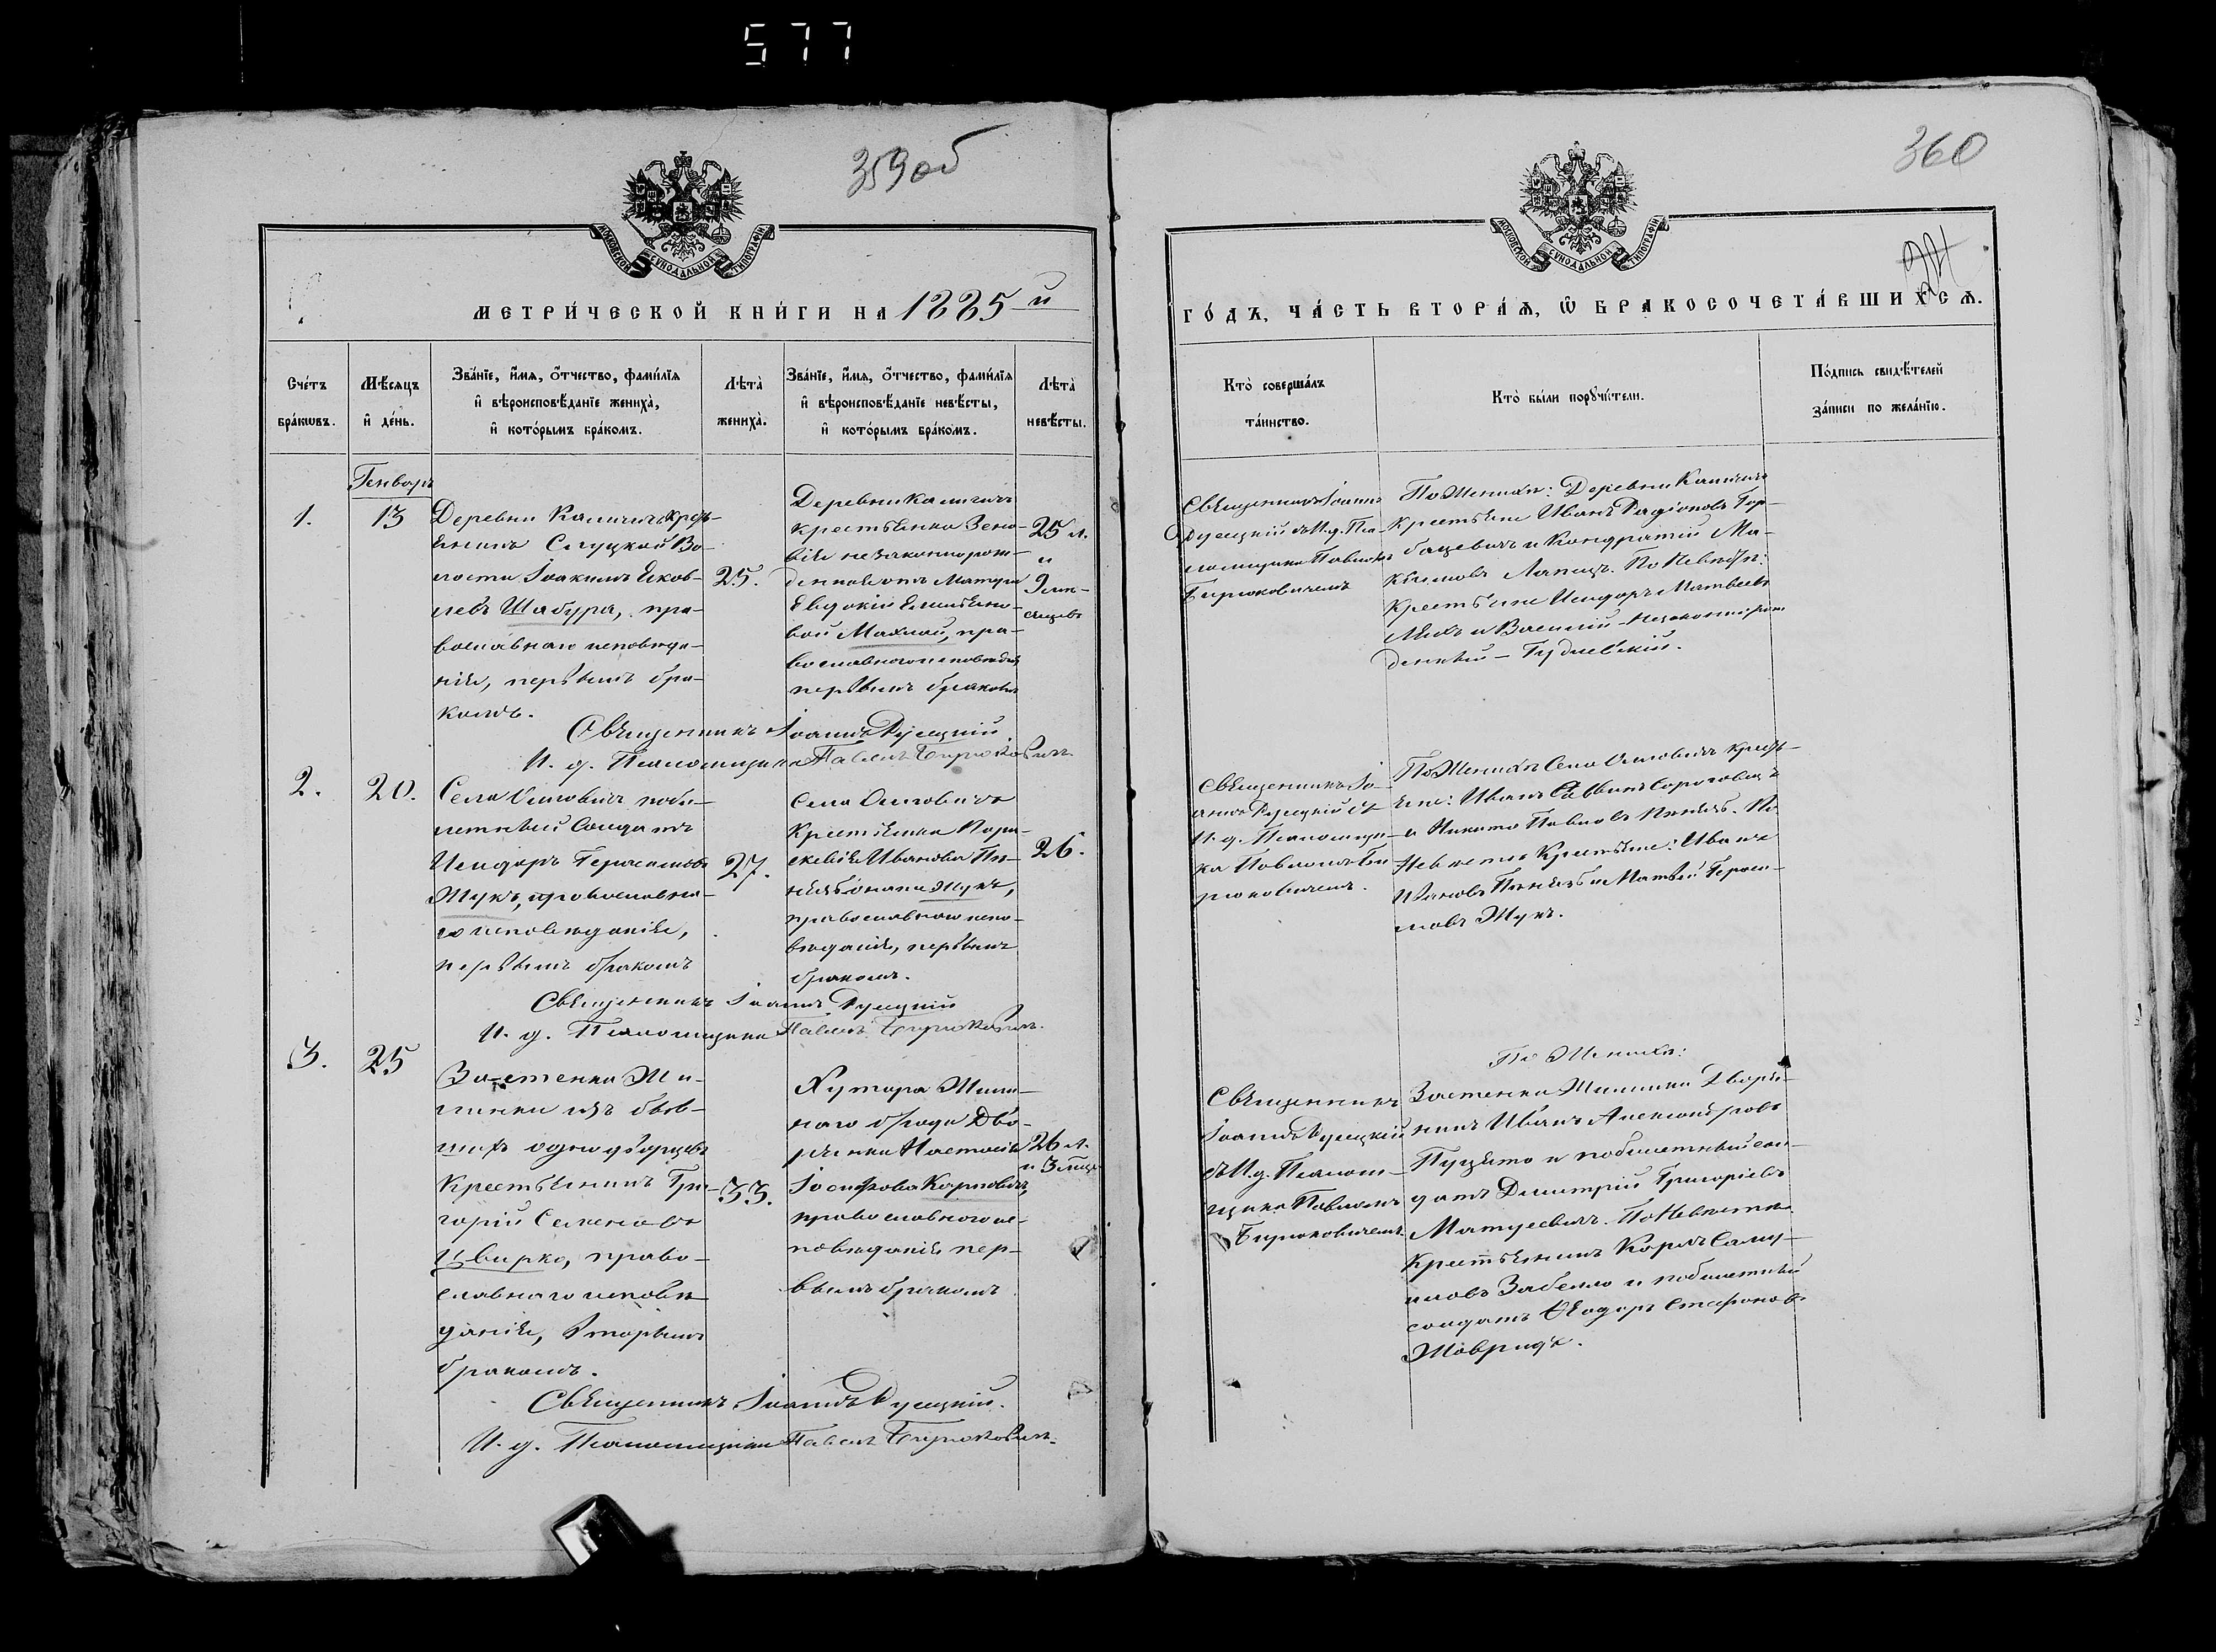 577
359 об
МОСКОВСКОЙ СѴНОДАЛЬНОЙ ТИПОГРАФІИ
МЕТРИ́ЧЕСКОЙ КНИ́ГИ НА 1885 й
Сче́тъ бра́кѡвъ.
Мѣ́сяцъ и҆ де́нь.
Зва́нїе, и҆́мѧ, ѻ҆́тчество, фами́лїѧ
и҆ вѣроисповѣ́данїе жениха̀,
и҆ кото́рымъ бра́комъ.
Лѣта̀ жениха̀.
Зва́нїе, и҆́мѧ, ѻ҆́тчество, фами́лїѧ
и҆ вѣроисповѣ́данїе невѣ́сты,
и҆ кото́рымъ бра́комъ.
Лѣта̀ невѣ́сты.
Генварь
1.
13
Деревни Калчичъ крест-
янинъ Слуцкой Во-
лости Іоакимъ Яков-
левъ Шабура, пра-
вославнаго исповѣда-
нія, первымъ бра-
комъ.
25.
Деревни Калчичъ
крестьянка Зено-
вія незаконнорож-
денная отъ Матери
Евдокіи Емельяно-
вой Махлай, пра-
вославнаго исповѣдан.
первымъ бракомъ
25 л.
и
9 мѣ-
сяцевъ
Священникъ Іоаннъ Русецкій
И. д. Псаломщика Павелъ Бирюковичъ
2.
20.
Села Омговичъ поби-
летный Солдатъ
Исидоръ Герасимовъ
Жукъ, православна-
го исповѣданія,
первымъ бракомъ
27.
Села Омговичъ
Крестьянка Пара-
скевія Иванова
Жукъ,
православнаго испо-
вѣданія, первымъ
бракомъ.
26.
Священникъ Іоаннъ Русецкій
И. д. Псаломщика Павелъ Бирюковичъ.
3.
25
Застенка Жи-
линки изъ быв-
шихъ однодворцевъ
Крестьянинъ Гри-
горій Семеновъ
Цвирко, право-
славнаго исповѣ-
данія, вторымъ
бракомъ.
33.
Хутора
броду Дво-
рянка Настасія
Іосифова Карповичъ,
православнаго ис-
повѣданія пер-
вымъ бракомъ
26 л.
и 3 мѣся.
Священникъ Іоаннъ Русецкій.
И. д. Псаломщика Павелъ Бирюковичъ.
360
МОСКОВСКОЙ СѴНОДАЛЬНОЙ ТИПОГРАФІИ
ГО́ДЪ, ЧА́СТЬ ВТОРА́Ѧ, Ѡ҆ БРАКОСОЧЕТА́ВШИХСѦ.
Кто̀ соверша́лъ та́инство.
Кто̀ бы́ли порꙋчи́тели.
По́дпись свидѣ́телей
за́писи по жела́нїю.
Священникъ Іоаннъ
Русецкій съ И. д. Пса-
ломщика Павломъ
Бирюковичемъ
По Женихѣ: Деревни Калчичъ
Крестьяне Иванъ Радіоновъ Гор-
бацевичъ и Кондратій Ма-
ксимовъ Лапецъ. По Невѣстѣ:
Крестьяне Исидоръ Матвеевъ
и Василій незаконнорож-
денный
Священникъ Іо-
аннъ Русецкій съ
И. д. Псаломщи-
ка Павломъ Би-
рюковичемъ.
По Женихѣ Села Омговичъ крест-
яне: Иванъ Саввинъ
и Никита Павловъ По
Невѣстѣ Крестьяне: Иванъ
Ивановъ и Матвей Гераси-
мовъ Жукъ.
Священникъ
Іоаннъ Русецкій
съ И. д. Псалом-
щика Павломъ
Бирюковичемъ
По Женихѣ:
Застенка Жилинки Дворя-
нинъ Иванъ Александровъ
Пуцято и побилетный сол-
датъ Димитрій Григоріевъ
Матусевичъ. По Невѣстѣ
Крестьянинъ Карлъ Саму-
иловъ Забелло и побилетный
солдатъ Ѳеодоръ Стефановъ
Жавридъ.